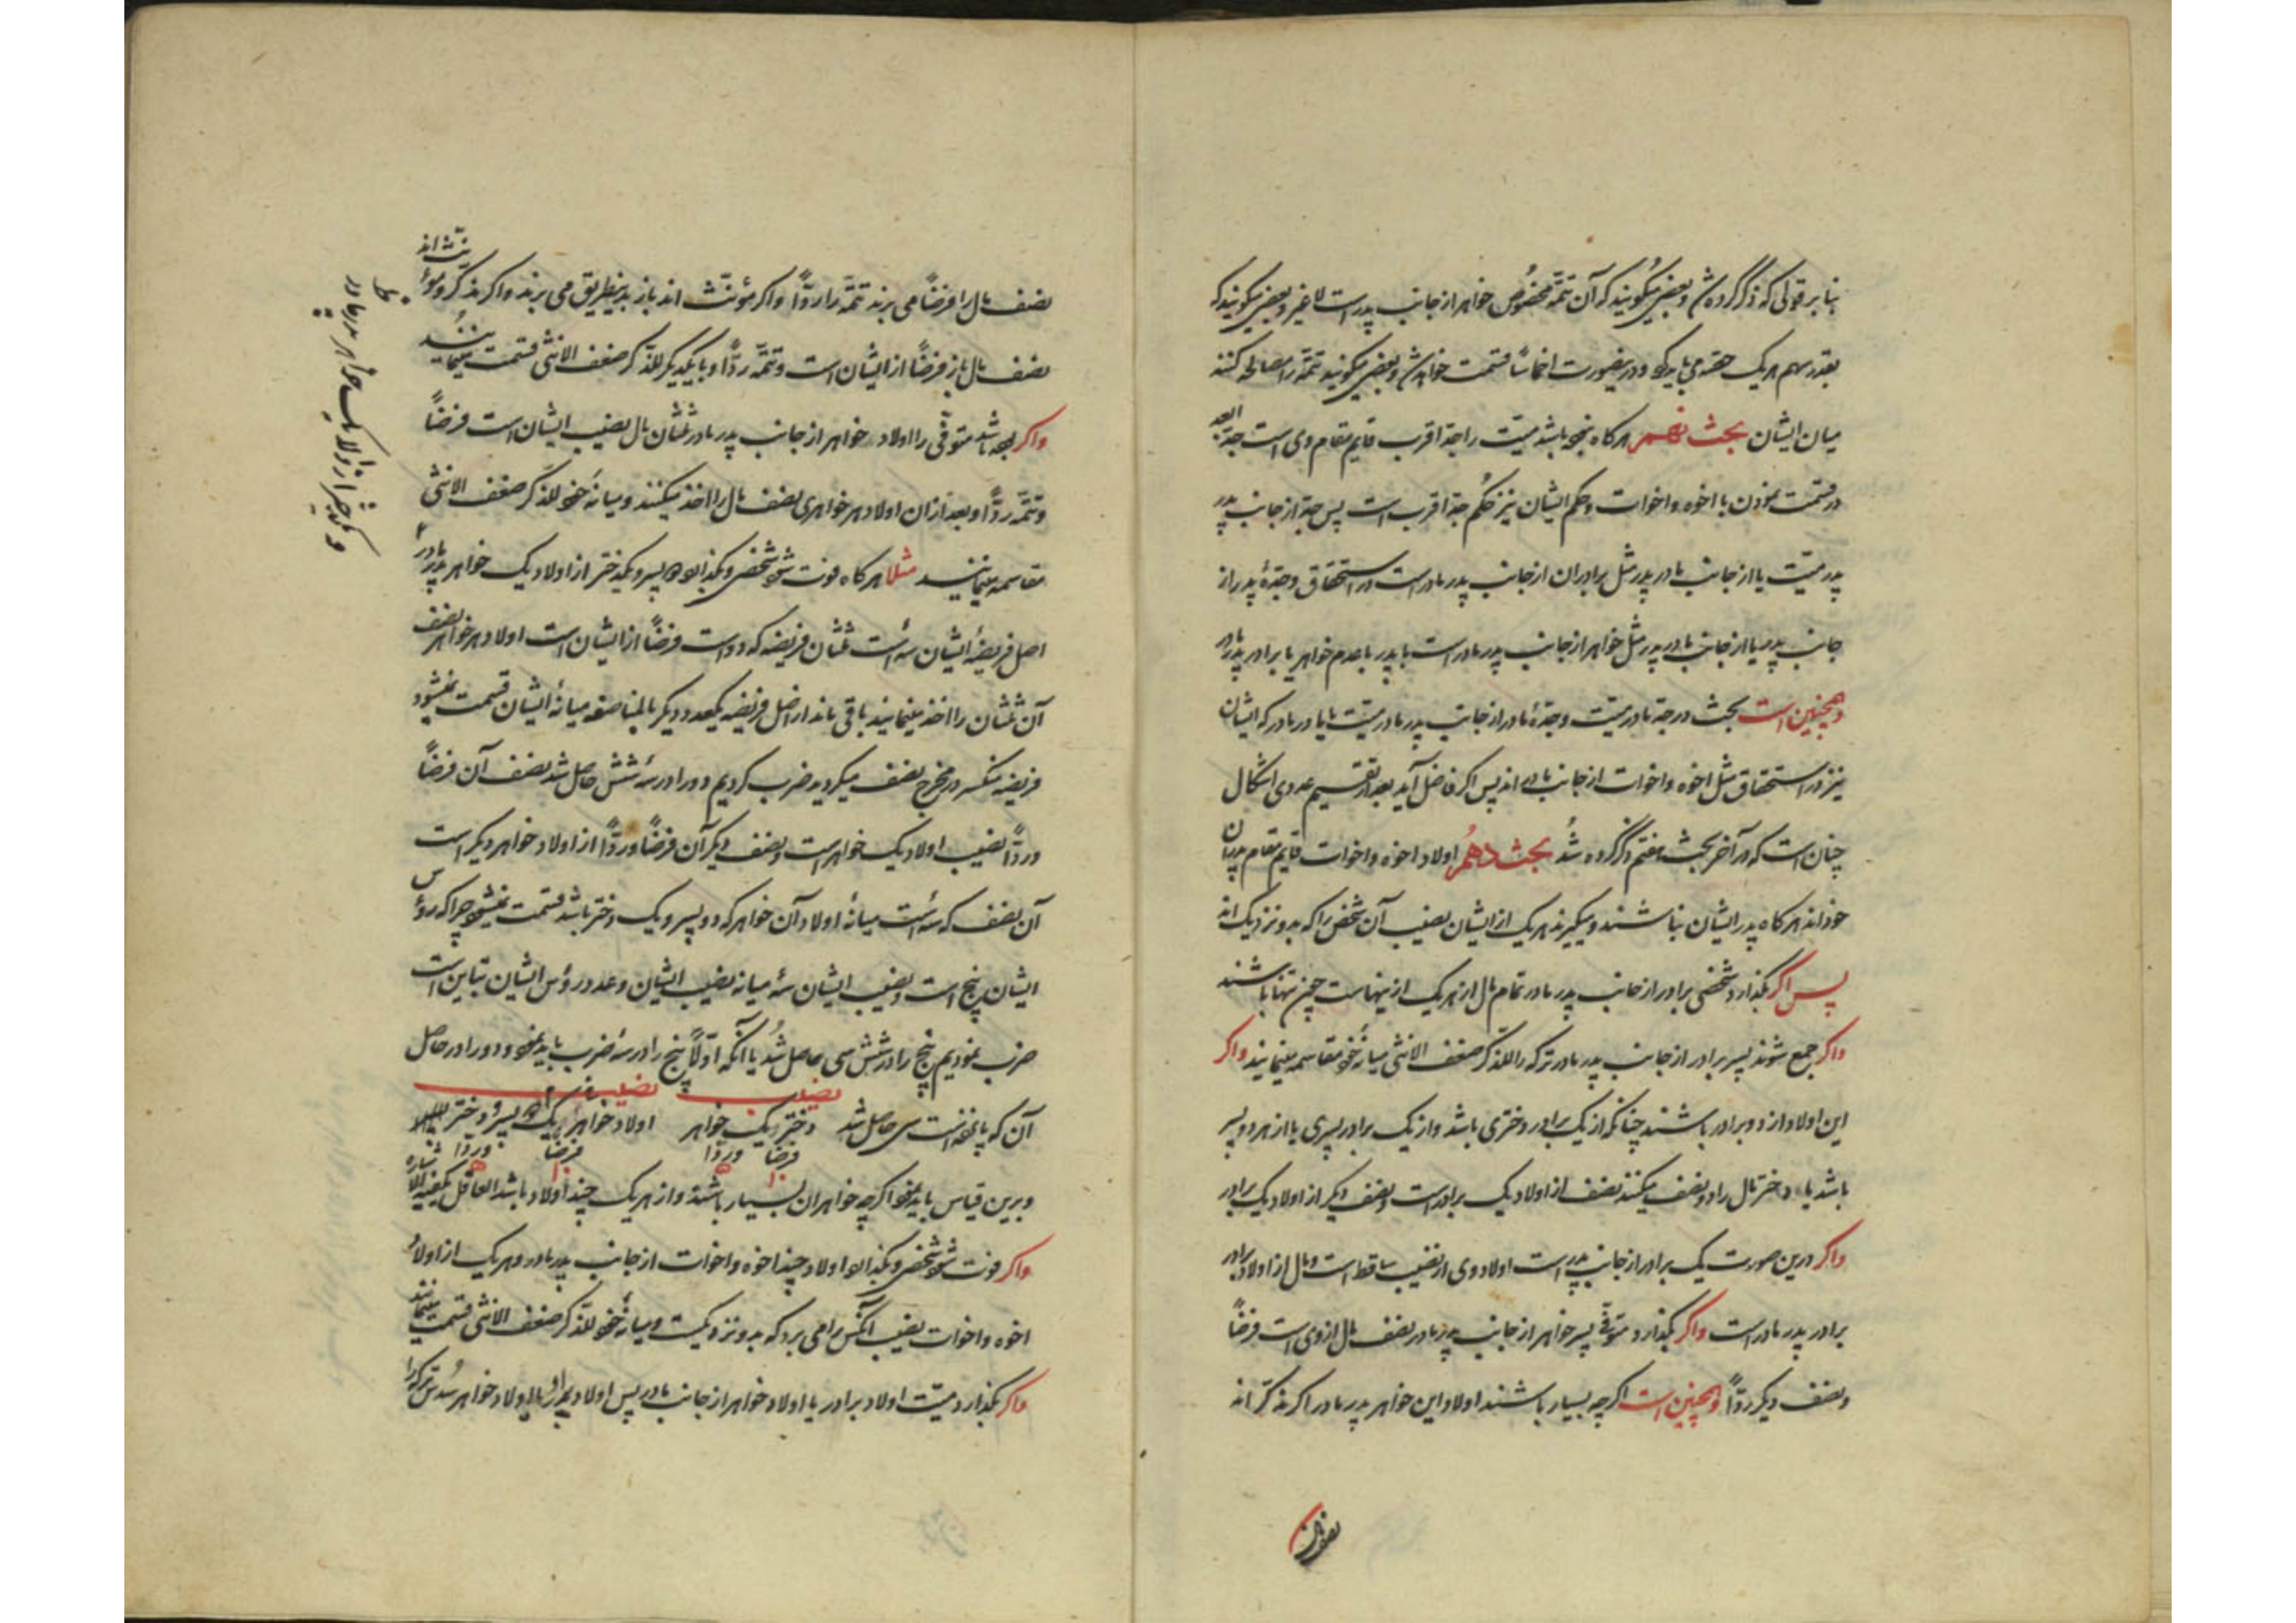 بنا بر قولی که ذکر کرده شد و بعضی میگویند که آن تتمّه مخصوص خواهر از جانب پدر است لا غیر و بعضی میگویند که
بقدر سهم هر یک حصّه می باید و درینصورت اخماسًا قسمت خواهد شد و بعضی میگویند تتمّه را مصالحه کنند
میان ایشان بحث نهم هر گاه نبوده باشد میّت را جدّ اقرب قایم مقام وی است جدّ ابعد
در قسمت نمودن با اخوه و اخوات و حکم ایشان نیز حکم جدّ اقرب است پس جدّ از جانب پدر
پدر میّت یا از جانب مادر پدر مثل برادران از جانب پدر مادر است در استحقاق و جدّهٔ پدر از
جانب پدر یا از جانب مادر پدر مثل خواهر از جانب پدر مادر است یا پدر با عدم خواهر یا برادر پدر مادر
و همچنین است بحث در جدّ مادر میّت و جدّهٔ مادر از جانب پدر مادر میّت یا مادر مادر که ایشان
نیز در استحقاق مثل اخوه و اخوات از جانب مادر اند پس اگر فاضل آید بعد از تقسیم عددی اشکال
چنان است که در آخر بحث هفتم ذکر کرده شد بحث دهم اولاد اخوه و اخوات قایم مقام پدران
خود اند هر گاه پدر ایشان نباشند و میگیرند هر یک از ایشان نصیب آن شخص را که بدو نزدیک اند
پس اگر بگذارد شخصی برادر از جانب پدر مادر تمام مال از هر یک ازینهاست چون تنها باشند
و اگر جمع شوند پسر برادر از جانب پدر مادر ترکه را للذکر ضعف الانثی میانه خود مقاسمه مینمایند و اگر
این اولاد از دو برادر باشند چنانکه از یک برادر دختری باشد و از یک برادر پسری یا از هر دو پسر
باشد یا دختر مال را دو نصف میکنند نصف از اولاد یک برادر است و نصف دیگر از اولاد یک برادر
و اگر درین صورت یک برادر از جانب پدر است اولاد وی از نصیب ساقط است و مال از اولاد برادر
برادر پدر مادر است و اگر بگذارد متوفّی پسر خواهر از جانب پدر مادر نصف مال از وی است فرضًا
و نصف دیگر ردًّا و همچنین است اگر چه بسیار باشند اولاد این خواهر پدر مادر اگر مذکّر اند
نصف مال را فرضًا می برند تتمّه را ردًّا و اگر مؤنّث اند باز بدینطریق می برند و اگر مذکّر و مؤنّث اند
نصف مال باز فرضًا از ایشان است و تتمّه ردًّا و با یکدیگر للذکر ضعف الانثی قسمت مینمایند
و اگر بوده باشد متوفّی را اولاد خواهر از جانب پدر مادر ثلثان مال نصیب ایشان است فرضًا
و تتمّه ردًّا و بعد از آن اولاد هر خواهری نصف مال را اخذ میکنند و میانهٔ خود للذکر ضعف الانثی
مقاسمه مینمایند مثلا هر گاه فوت شود شخصی و بگذارد دو پسر و یکدختر از اولاد یک خواهر پدر مادر
و یکدختر از اولاد یک خواهر پدر مادر
اصل فریضهٔ ایشان سه است ثلثان فریضه که دو است فرضًا از ایشان است اولاد هر خواهر نصف
آن ثلثان را اخذ مینمایند باقی ماند از اصل فریضه یکعدد دیگر بالمناصفه میانهٔ ایشان قسمت نمیشود
فریضه منکسر در مخرج نصف میگردید ضرب کردیم دو را در سه شش حاصل شد نصف آن فرضًا
و ردًّا نصیب اولاد یک خواهر است و نصف دیگر آن فرضًا و ردًّا از اولاد خواهر دیگر است
آن نصف که سه است میانهٔ اولاد آن خواهر که دو پسر و یک دختر باشد قسمت نمیشود چرا که رؤس
ایشان پنج است و نصیب ایشان سه میانه نصیب ایشان و عدد رؤس ایشان تباین است
ضرب نمودیم پنج را در شش سی حاصل شد یا آنکه اوّلًا پنج را در سه ضرب باید نمود و دو را در حاصل
نصیب نصیب
آن که پانزده است سی حاصل شد دختر یک خواهر اولاد خواهر یک
فرضًا و ردًّا فرضًا و ردًّا
و برین قیاس باید نمود اگر چه خواهران بسیار باشند و از هر یک چند اولاد باشد العاقل یکفیه الاشاره
و اگر فوت شود شخصی و بگذارد اولاد چند اخوه و اخوات از جانب پدر مادر و هر یک از اولاد
اخوه و اخوات نصیب آنکس را می برد که بدو نزدیکست و میانهٔ خود للذکر ضعف الانثی قسمت مینمایند
و اگر بگذارد میّت اولاد برادر یا اولاد خواهر از جانب مادر پس اولاد برادر یا اولاد خواهر سدس ترکه را